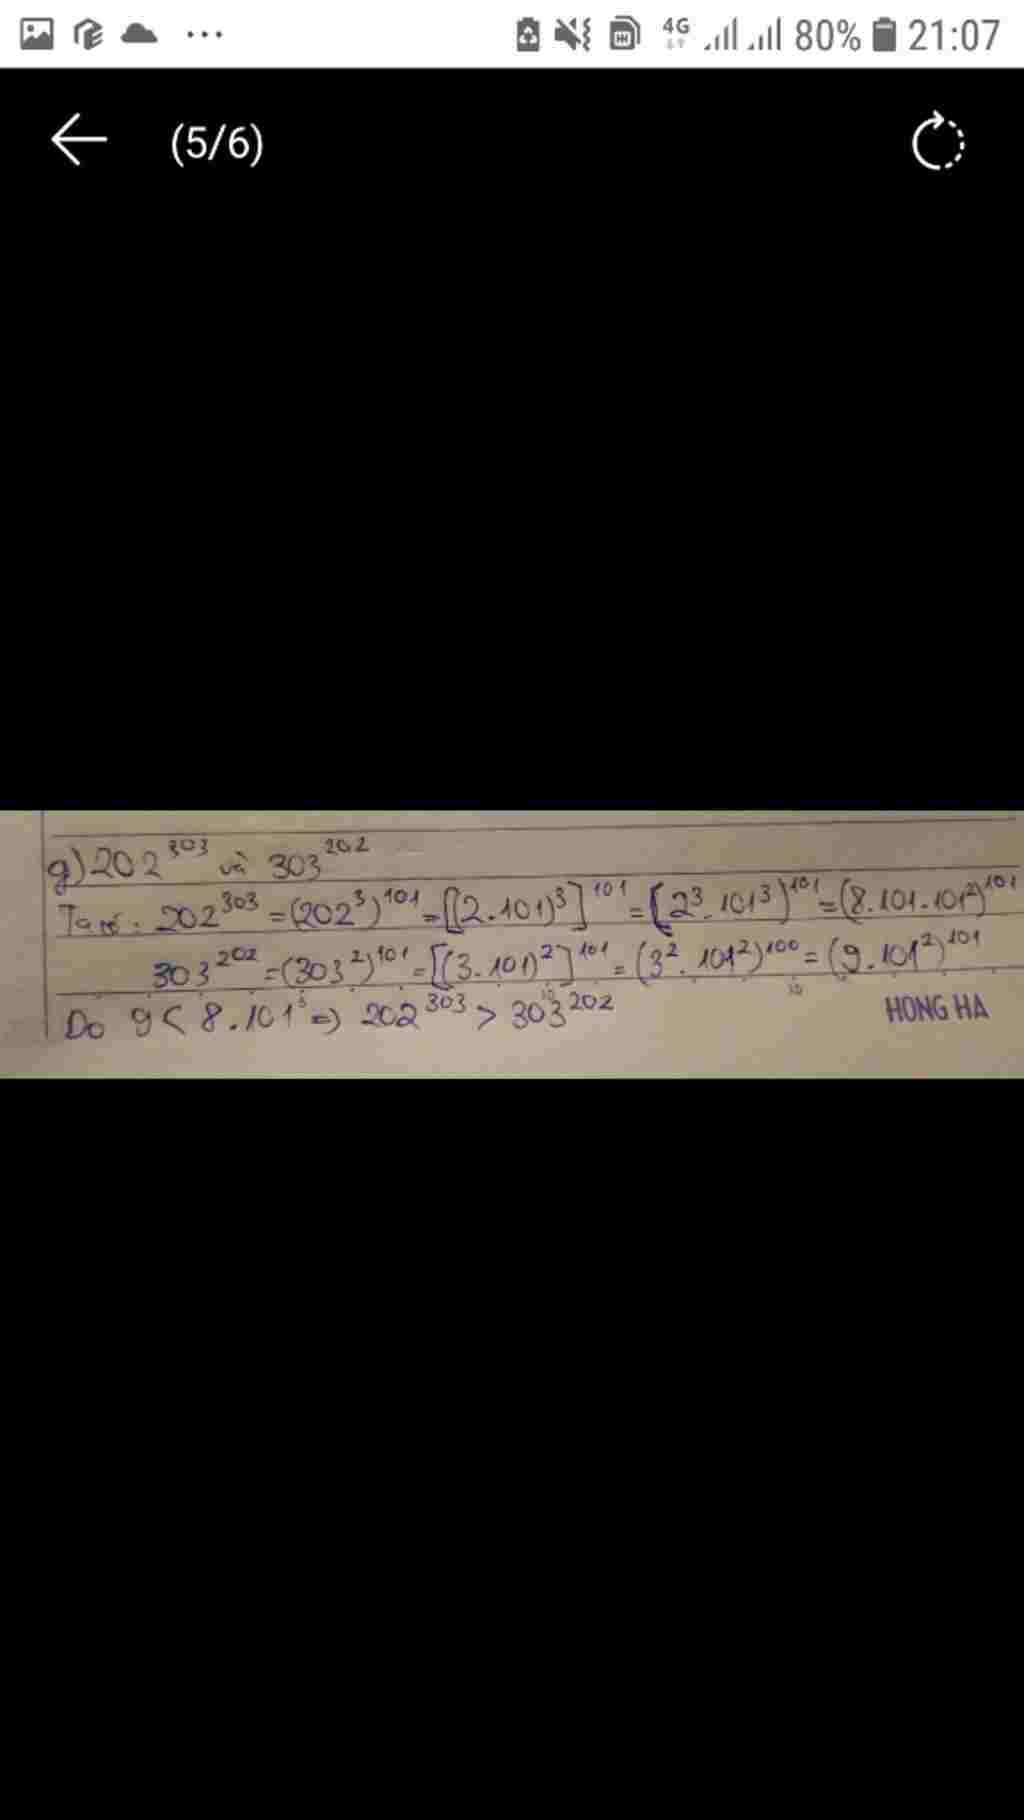 4G 80% 21:07
(5/6)
g) 202^303 và 303^202
Ta có: 202^303 = (202^3)^101 = [(2.101)^3]^101 = [2^3.101^3)^101 = (8.101.101^2)^101
303^202 = (303^2)^101 = [(3.101)^2]^101 = (3^2.101^2)^100 = (9.101^2)^101
Do 9 < 8.101 => 202^303 > 303^202
HONG HA